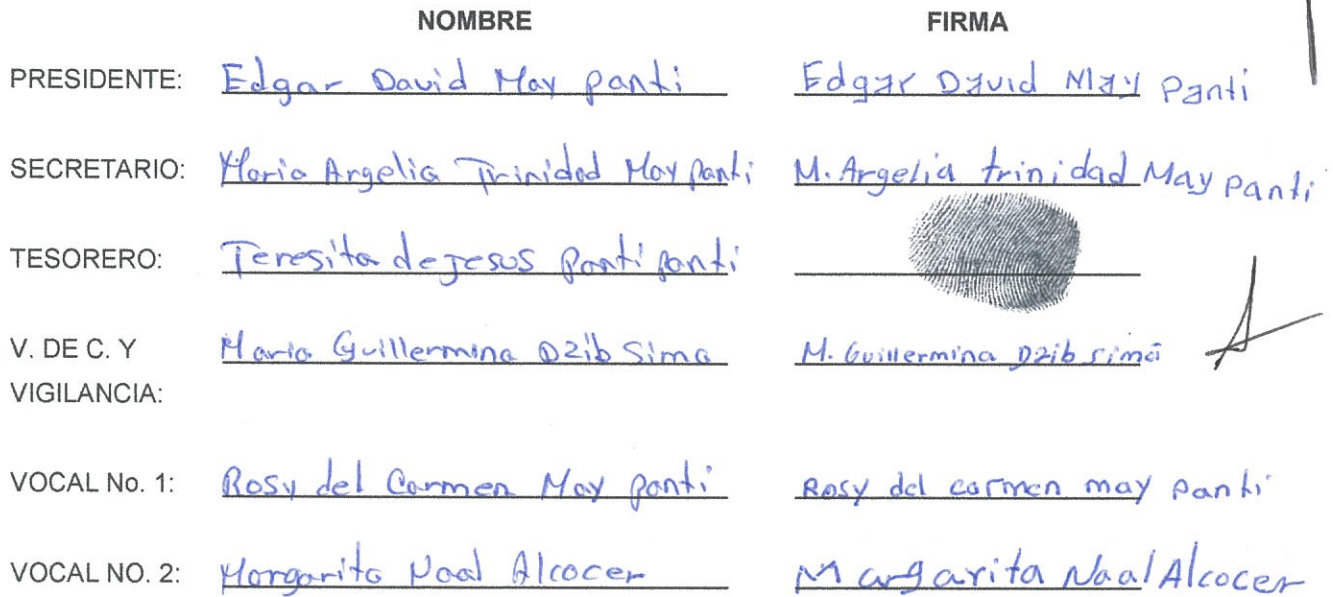 NOMBRE FIRMA
PRESIDENTE: Edgar David May panti Edgar David May Panti
SECRETARIO: Maria Argelia Trinidad May panti M. Argelia trinidad May panti
TESORERO: Teresita de jesus panti panti
V. DE C. Y Maria Guillermina Dzib Sima M. Guillermina Dzib simá
VIGILANCIA:
VOCAL No. 1: Rosy del Carmen May panti Rosy del carmen may panti
VOCAL NO. 2: Margarita Naal Alcocer Margarita Naal Alcocer